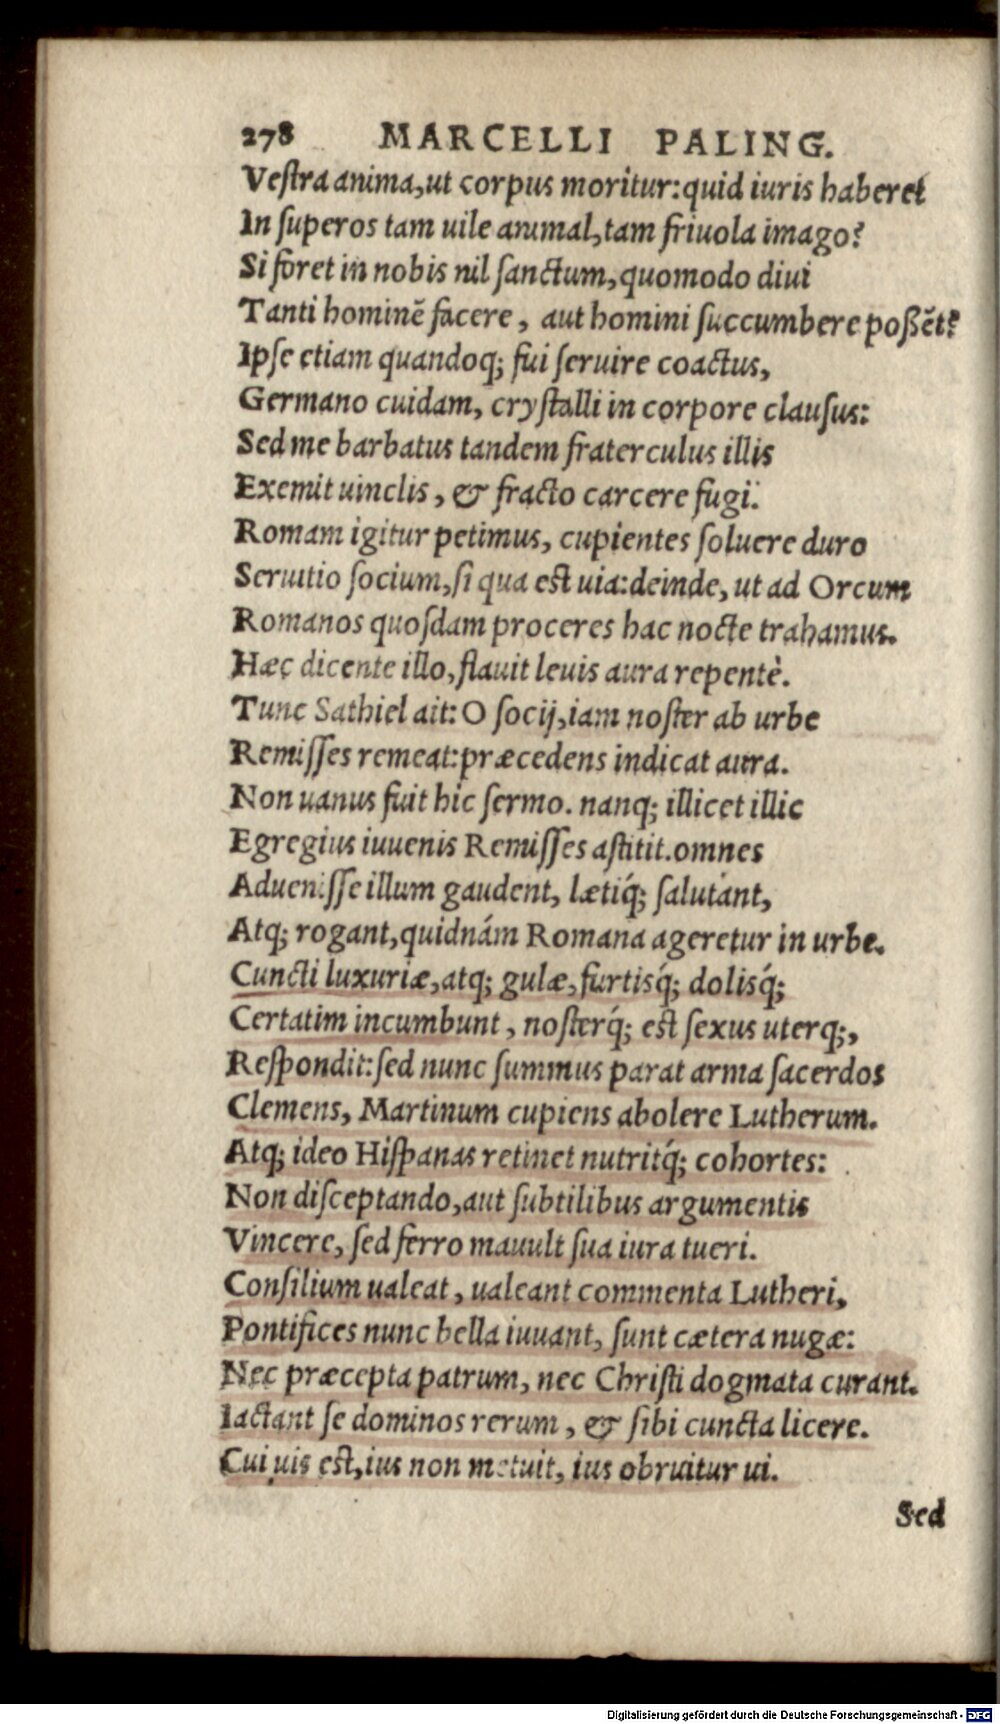 278 MARCELLI PALING.
Vestra anima, ut corpus moritur: quid iuris haberet
In superos tam uile animal, tam friuola imago?
Si foret in nobis nil sanctum, quomodo diui
Tanti hominẽ facere, aut homini succumbere poßẽt?
Ipse etiam quandoq; fui seruire coactus,
Germano cuidam, crystalli in corpore clausus:
Sed me barbatus tandem fraterculus illis
Exemit uinclis, & fracto carcere fugi.
Romam igitur petimus, cupientes soluere duro
Seruitio socium, si qua est uia: deinde, ut ad Orcum
Romanos quosdam proceres hac nocte trahamus.
Hæc dicente illo, flauit leuis aura repentè.
Tunc Sathiel ait: O socij, iam noster ab urbe
Remisses remeat: præcedens indicat aura.
Non uanus fuit hic sermo. nanq; illicet illic
Egregius iuuenis Remisses astitit. omnes
Aduenisse illum gaudent, lætiq́; salutant,
Atq; rogant, quidnám Romana ageretur in urbe.
Cuncti luxuriæ, atq; gulæ, furtisq́; dolisq́;
Certatim incumbunt, nosterq́; est sexus uterq;,
Respondit: sed nunc summus parat arma sacerdos
Clemens, Martinum cupiens abolere Lutherum.
Atq; ideo Hispanas retinet nutritq́; cohortes:
Non disceptando, aut subtilibus argumentis
Vincere, sed ferro mauult sua iura tueri.
Consilium ualeat, ualeant commenta Lutheri,
Pontifices nunc bella iuuant, sunt cætera nugæ:
Nec præcepta patrum, nec Christi dogmata curant.
Iactant se dominos rerum, & sibi cuncta licere.
Cui uis est, ius non metuit, ius obruitur ui.
Sed
Digitalisierung gefördert durch die Deutsche Forschungsgemeinschaft - DFG